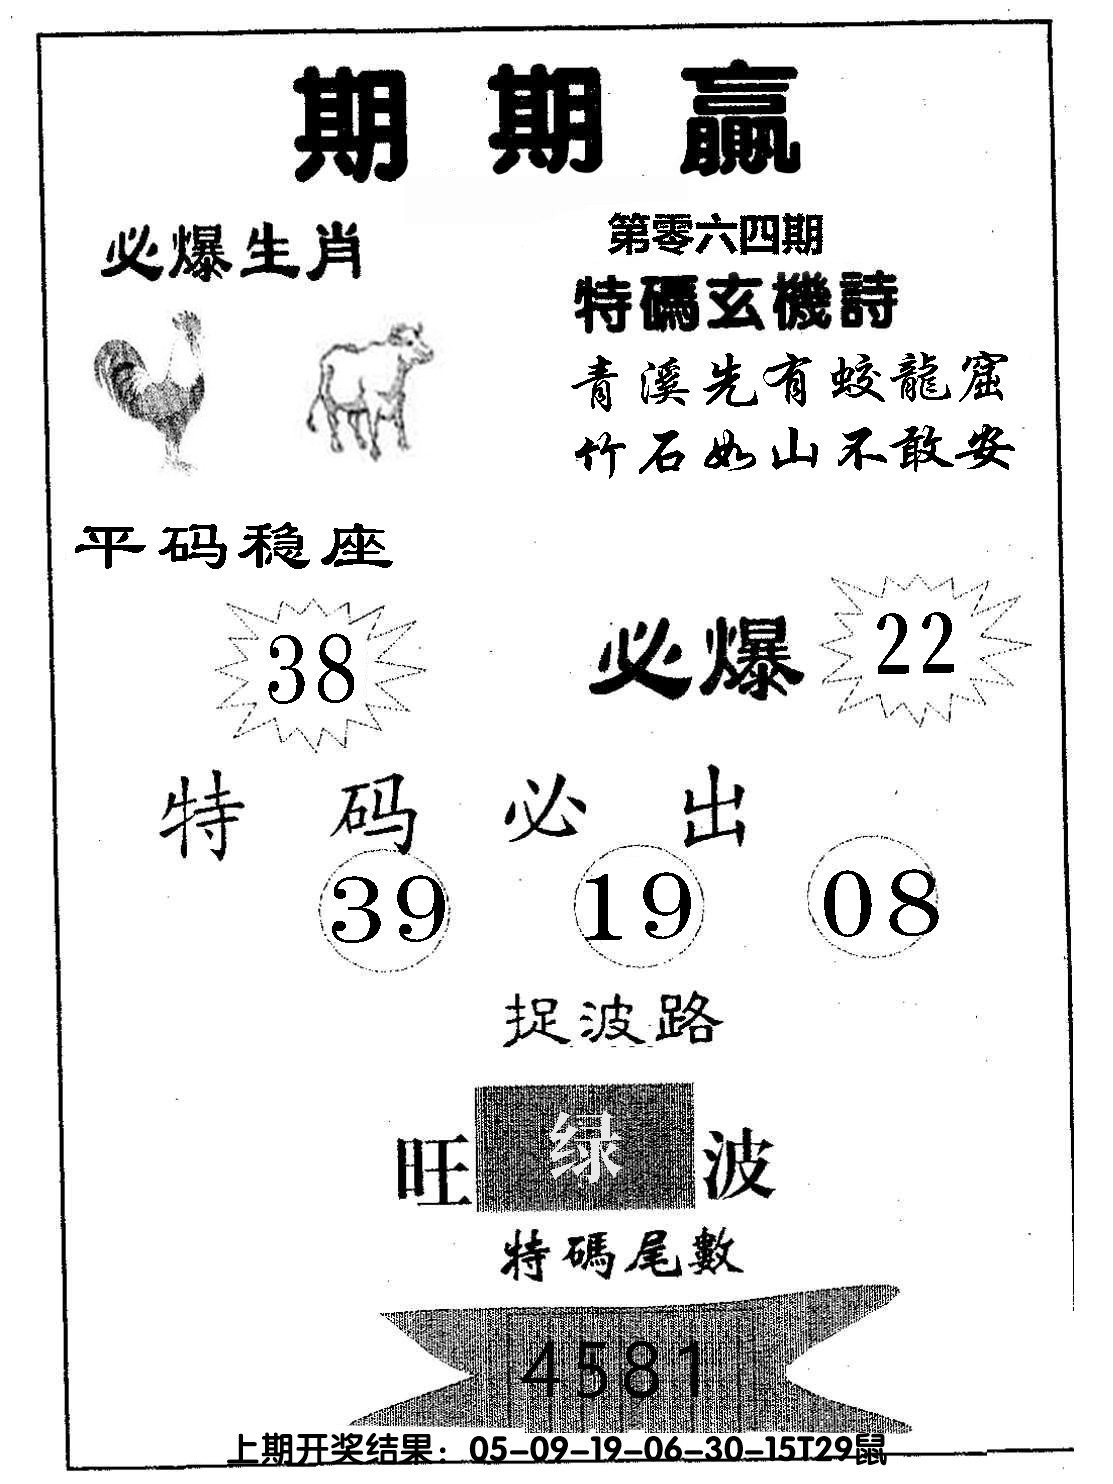 期期赢
必爆生肖
第零六四期
特碼玄機詩
青溪先有蛟龍窟
竹石如山不敢安
平码稳座
38
必爆 22
特码必出
39 19 08
捉波路
旺 绿 波
特碼尾數
4581
上期开奖结果：05-09-19-06-30-15T29鼠